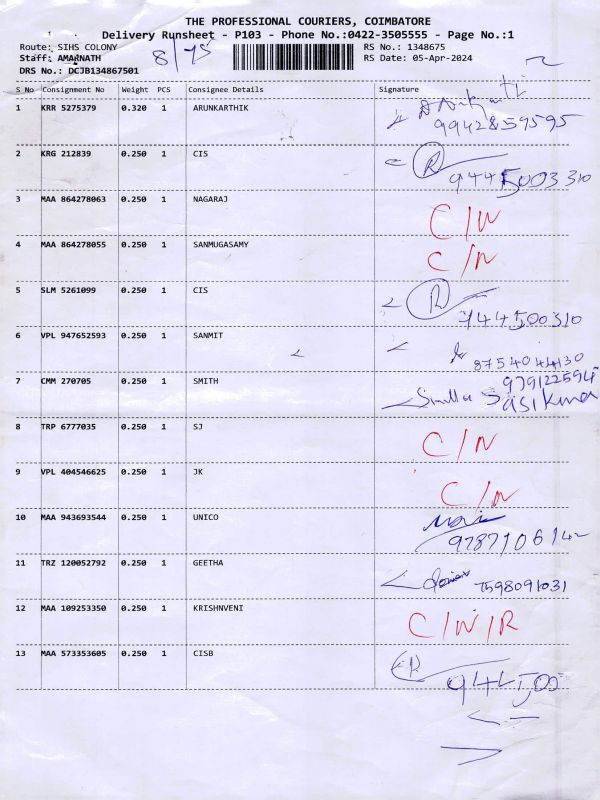 THE PROFESSIONAL COURIERS, COIMBATORE
Delivery Runsheet - P103 - Phone No.:0422-3505555 - Page No.:1
Route: SIHS COLONY RS No.: 1348675
Staff: AMARNATH 8/75 RS Date: 05-Apr-2024
DRS No.: DCJB134867501
S No Consignment No Weight PCS Consignee Details Signature
1 KRR 5275379 0.320 1 ARUNKARTHIK
9942859595
2 KRG 212839 0.250 1 CIS R
9445003310
3 MAA 864278063 0.250 1 NAGARAJ C/N
4 MAA 864278055 0.250 1 SANMUGASAMY C/N
5 SLM 5261099 0.250 1 CIS R
744500310
6 VPL 947652593 0.250 1 SANMIT
8754044130
7 CMM 270705 0.250 1 SMITH 979122594
Sasikumar
8 TRP 6777035 0.250 1 SJ C/N
9 VPL 404546625 0.250 1 JK C/N
10 MAA 943693544 0.250 1 UNICO Mani
9787106142
11 TRZ 120052792 0.250 1 GEETHA 7598091031
12 MAA 109253350 0.250 1 KRISHNVENI C/N/R
13 MAA 573353605 0.250 1 CISB R
944500